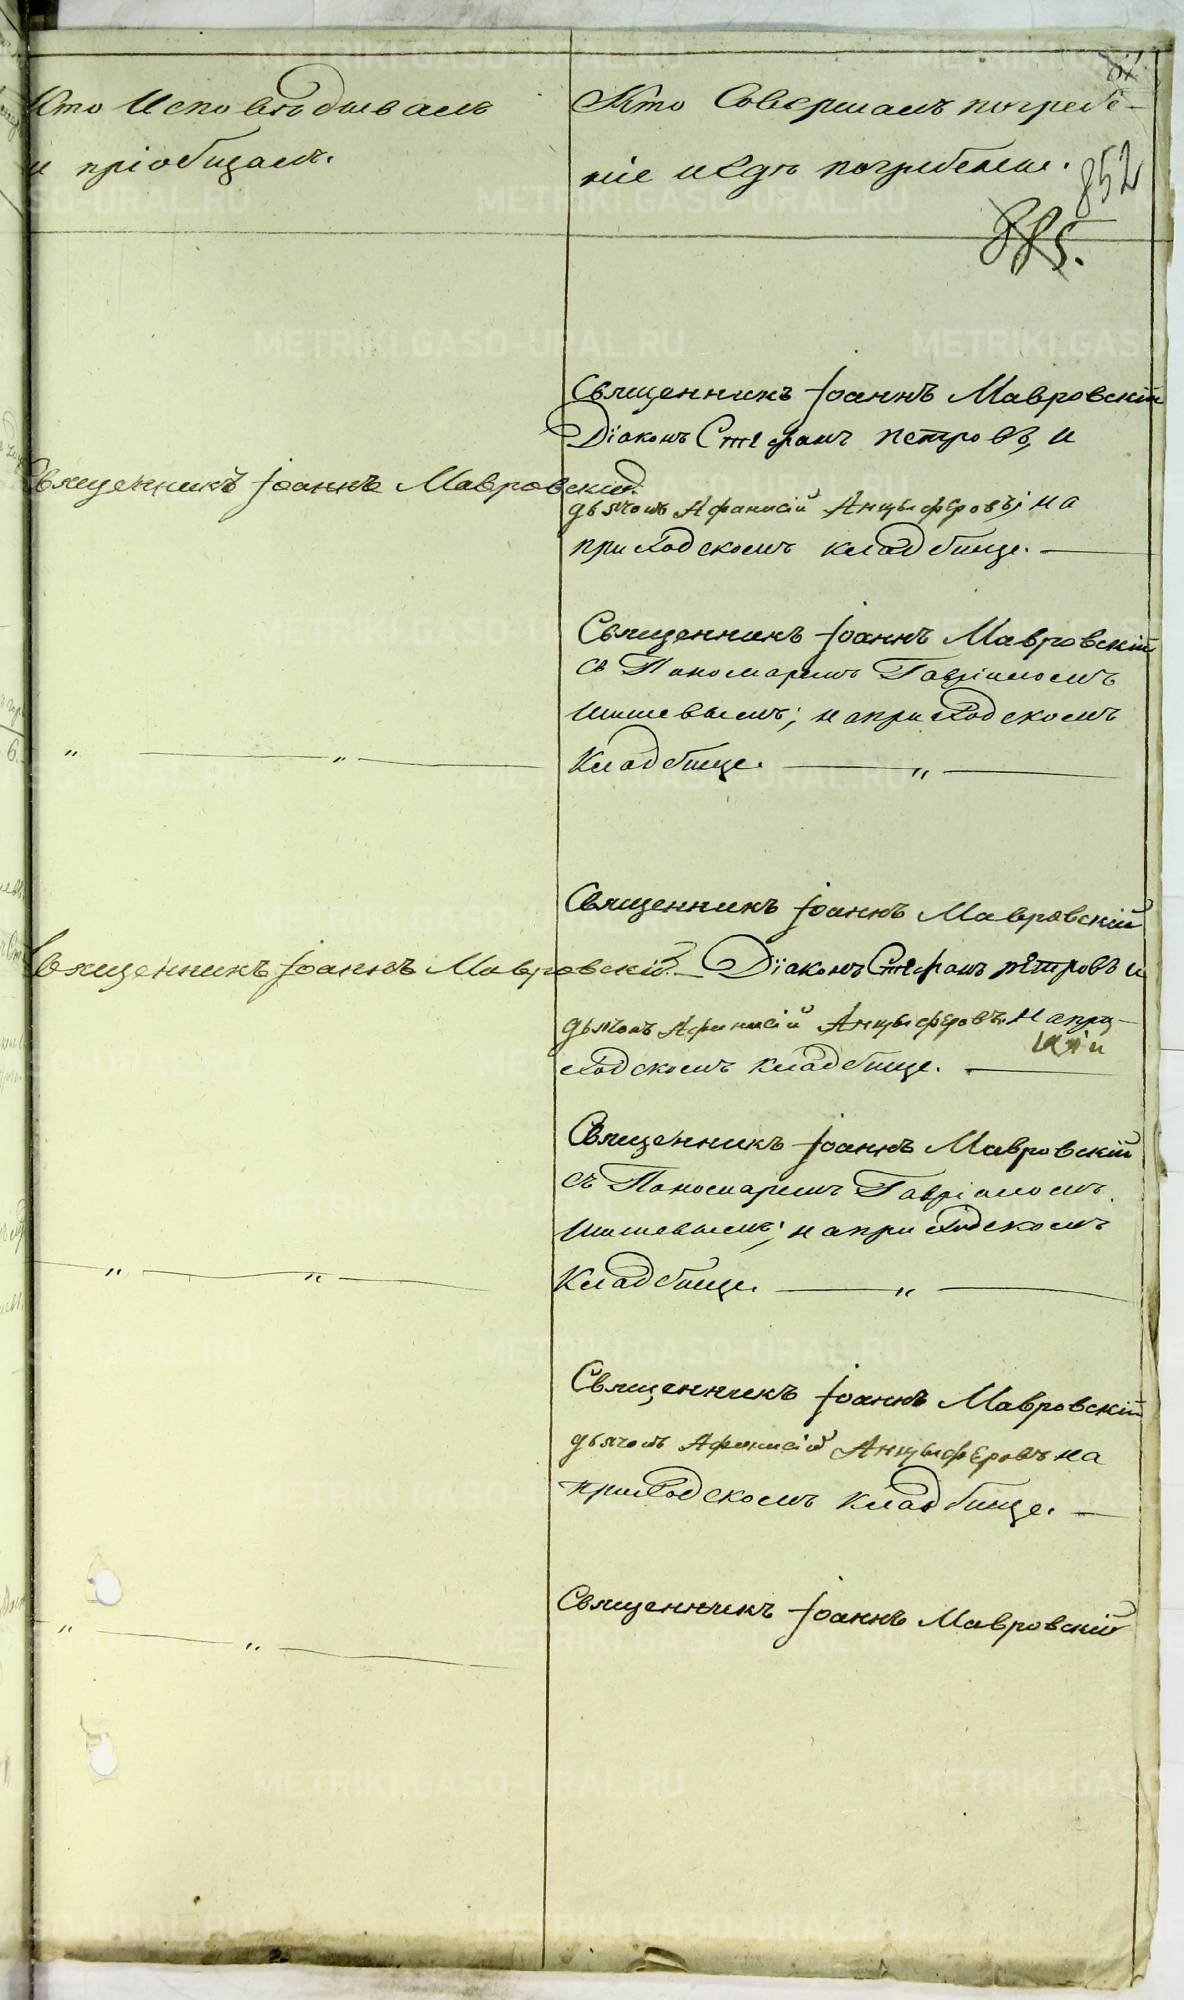 Кто Исповѣдывалъ
и пріобщалъ.
Кто Совершалъ погребе-
ніе и гдѣ погребены.
852
885.
Священникъ Іоаннъ Мавровскій.
Священникъ Іоаннъ Мавровскій
Діаконъ Стефанъ Петровъ, и
дьячокъ Афанасій Анцыферовъ; на
приходскомъ кладбище.
" "
Священникъ Іоаннъ Мавровскій
съ Пономаремъ Гавріиломъ
Шишевымъ; на приходскомъ
Кладбище. "
Священникъ Іоаннъ Мавровскій.
Священникъ Іоаннъ Мавровскій
Діаконъ Стефанъ Петровъ и
дьячокъ Афанасій Анцыферовъ. на при-
ходскомъ кладбище.
" "
Священникъ Іоаннъ Мавровскій
съ Пономаремъ Гавріиломъ
Шишевымъ; на приходскомъ
Кладбище. "
Священникъ Іоаннъ Мавровскій
дьячокъ Афанасій Анцыферовъ на
приходскомъ кладбище.
" "
Священникъ Іоаннъ Мавровскій
METRIKI.GASO-URAL.RU